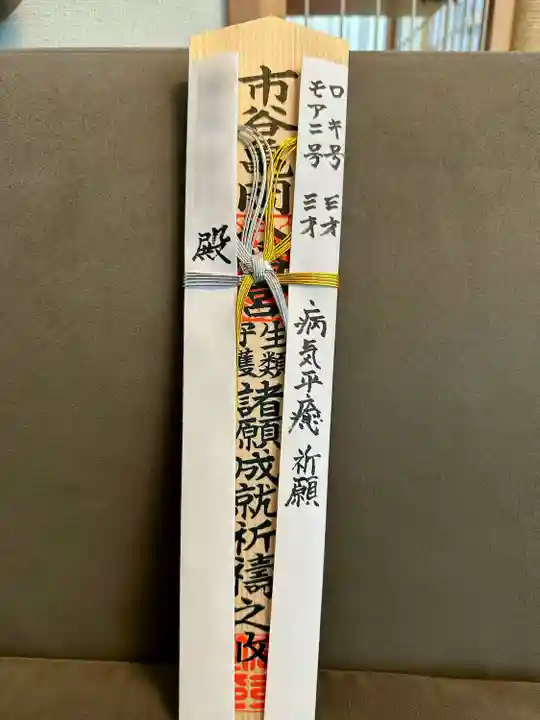 ロキ号 三才
モアニ号 三才
病気平癒 祈願
市谷亀岡八幡宮
生類
守護
諸願成就祈禱之攸
殿